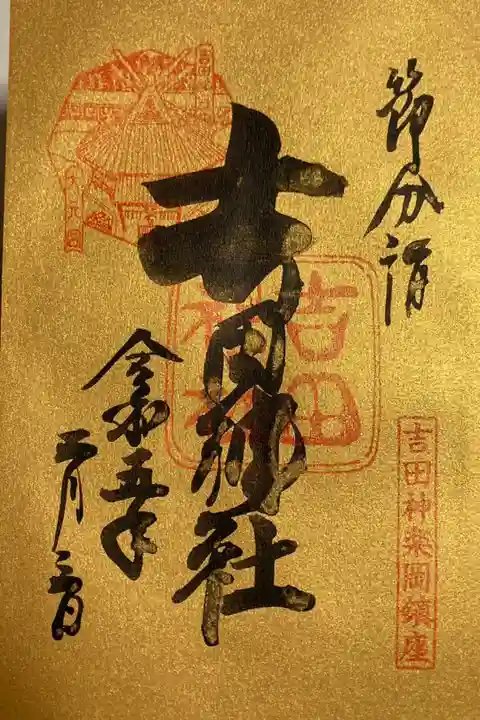 節分詣
吉田神楽岡鎮座
吉田神社
吉田
神社
令和五年
二月三日